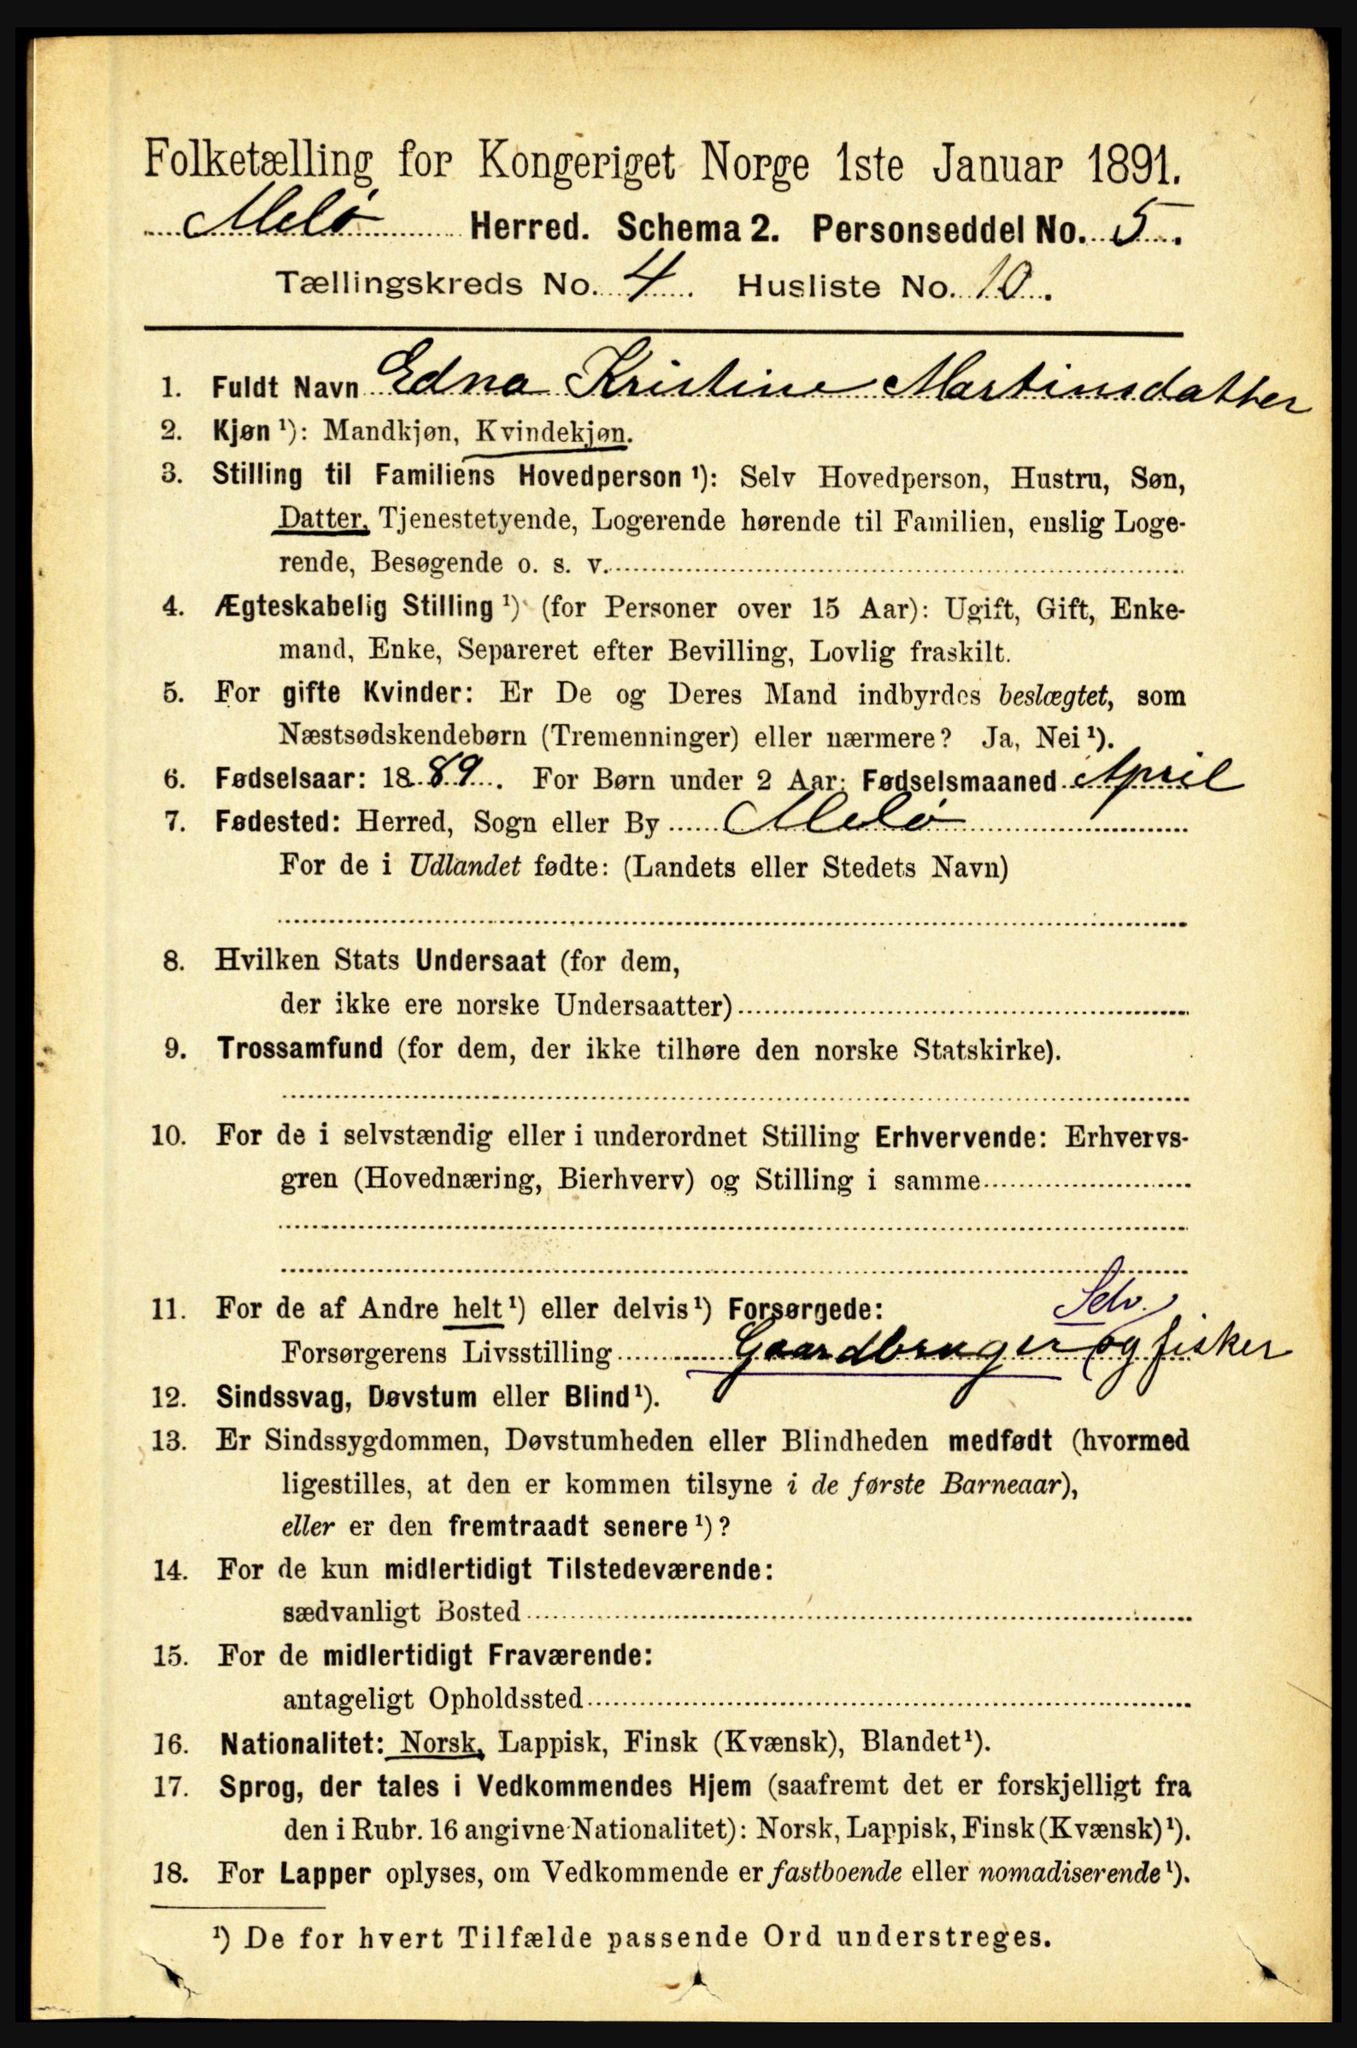 Folketælling for Kongeriget Norge 1ste Januar 1891.
Melø Herred. Schema 2. Personseddel No. 5.
Tællingskreds No. 4 Husliste No. 10.
1. Fuldt Navn Edna Kristine Martinsdatter
2. Kjøn ¹): Mandkjøn, Kvindekjøn.
3. Stilling til Familiens Hovedperson ¹): Selv Hovedperson, Hustru, Søn,
Datter, Tjenestetyende, Logerende hørende til Familien, enslig Loge-
rende, Besøgende o. s. v.
4. Ægteskabelig Stilling ¹) (for Personer over 15 Aar): Ugift, Gift, Enke-
mand, Enke, Separeret efter Bevilling, Lovlig fraskilt.
5. For gifte Kvinder: Er De og Deres Mand indbyrdes beslægtet, som
Næstsødskendebørn (Tremenninger) eller nærmere? Ja, Nei ¹).
6. Fødselsaar: 1889. For Børn under 2 Aar: Fødselsmaaned April
7. Fødested: Herred, Sogn eller By Melø
For de i Udlandet fødte: (Landets eller Stedets Navn)
8. Hvilken Stats Undersaat (for dem,
der ikke ere norske Undersaatter)
9. Trossamfund (for dem, der ikke tilhøre den norske Statskirke).
10. For de i selvstændig eller i underordnet Stilling Erhvervende: Erhvervs-
gren (Hovednæring, Bierhverv) og Stilling i samme
Selv.
11. For de af Andre helt ¹) eller delvis ¹) Forsørgede:
Forsørgerens Livsstilling Gaardbruger og fisker
12. Sindssvag, Døvstum eller Blind ¹).
13. Er Sindssygdommen, Døvstumheden eller Blindheden medfødt (hvormed
ligestilles, at den er kommen tilsyne i de første Barneaar),
eller er den fremtraadt senere ¹)?
14. For de kun midlertidigt Tilstedeværende:
sædvanligt Bosted
15. For de midlertidigt Fraværende:
antageligt Opholdssted
16. Nationalitet: Norsk, Lappisk, Finsk (Kvænsk), Blandet ¹).
17. Sprog, der tales i Vedkommendes Hjem (saafremt det er forskjelligt fra
den i Rubr. 16 angivne Nationalitet): Norsk, Lappisk, Finsk (Kvænsk) ¹).
18. For Lapper oplyses, om Vedkommende er fastboende eller nomadiserende ¹).
¹) De for hvert Tilfælde passende Ord understreges.